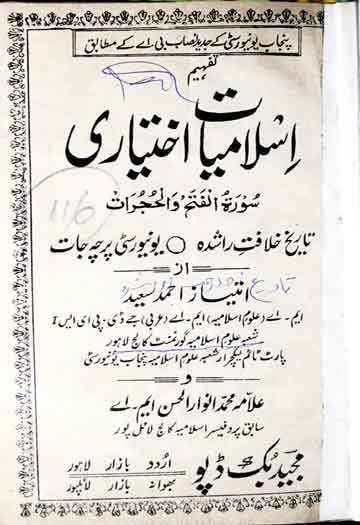 پنجاب یونیورسٹی کے جدید نصاب بی۔ اے کے مطابق
تفہیم
اسلامیات اختیاری
سُورَۃُ الْفَتْح وَالْحُجُرَات
116
تاریخ خلافتِ راشدہ ○ یونیورسٹی پرچہ جات
از
امتیاز احمد سعید
ایم۔ اے (علوم اسلامیہ) ایم۔ اے (عربی) جے ڈی۔ پی ای ایس I
شعبہ علوم اسلامیہ گورنمنٹ کالج لاہور
پارٹ ٹائم لیکچرار شعبہ علوم اسلامیہ پنجاب یونیورسٹی
و
علامہ محمد انوار الحسن ایم۔ اے
سابق پروفیسر اسلامیہ کالج لائل پور
مجید بک ڈپو
اردو بازار لاہور
بھوانہ بازار لائلپور